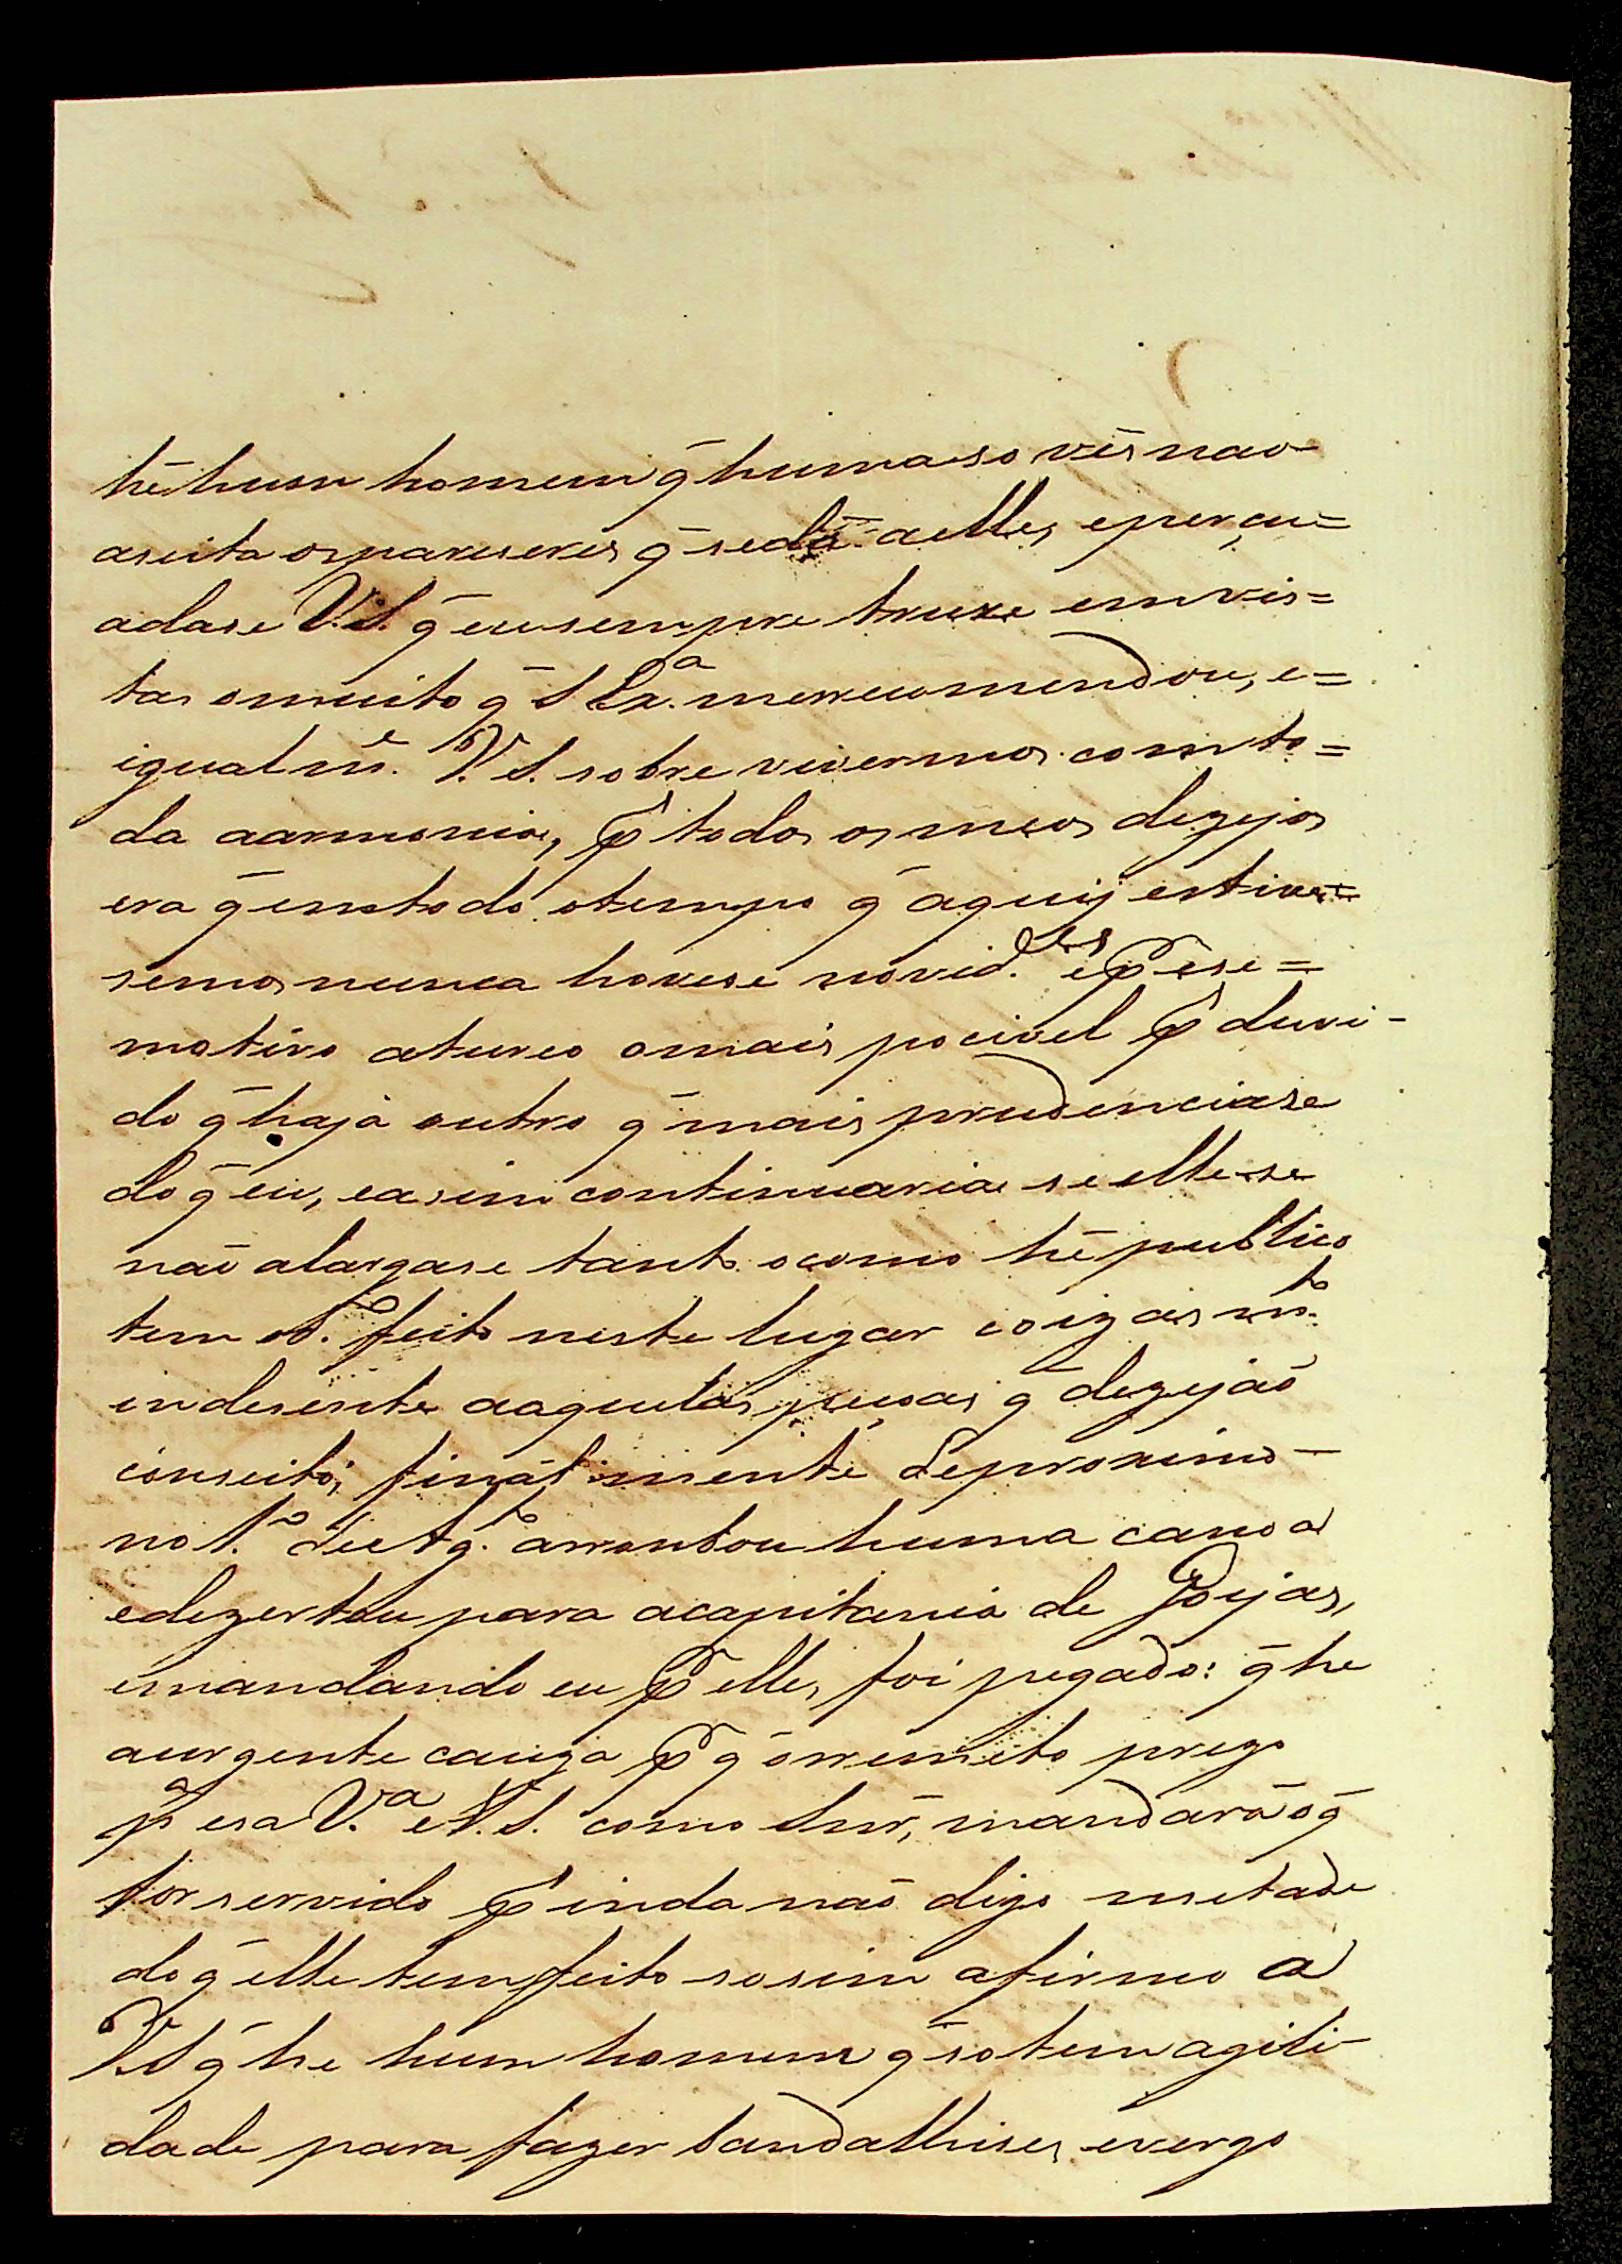 hé hum homem q̃ huma so vês nao
aseita os pareseres q̃ se dá a elles, eperçu=
adase V.S. q̃ eu sempre truxe em vis=
tas omuito q̃ S Ex.ª merrecomendou, e=
igualm.e V. S. sobre vivermos com to=
da aarmonia, p̃ todos os meos dezejos
era q̃ em todo otempo q̃ aquij estive=
semos nunca hovese novid.es e p̃ ese=
motivo atureo omais pocivel p̃ duvi-
do q̃ haja outro q̃ mais prudenciase
do q̃ eu, easim continuaria se elle se
naõ alargase tanto como hé publico
tem feito neste lugar coizas m.to
indesente aaquelas pesoas q̃ dezejaõ
conseito; finalmente deproximo
no 1.º de Ag.to arrombou huma canoa
edezertou para acapitania de Goijas,
emandando eu p̃ elle, foi pegado: q̃ he
aurgente cauza p̃ q̃ orremeto prezo
p.ª esa V.ª e V. S. como Snr, mandará oq̃
for servido p̃ inda naõ digo metade
do q̃ elle tem feito so sim afirmo a
V. S q̃ he hum homem q̃ so tem agili-
dade para fazer bandalhises, evergo